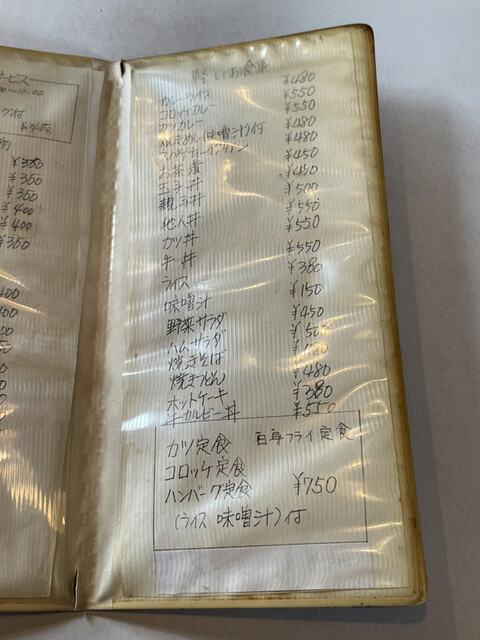 ービス
¥350
¥350
¥350
¥400
¥400
¥350
400
400
軽いお食事
カレーライス ¥480
コロッケカレー ¥550
カツカレー ¥550
¥480
(味噌汁)付 ¥480
お茶漬 ¥450
玉子丼 ¥450
親子丼 ¥500
他人丼 ¥550
カツ丼 ¥550
牛丼 ¥550
ライス
味噌汁 ¥150
野菜サラダ ¥450
ハムサラダ ¥500
焼きそば
焼きうどん ¥480
ホットケーキ ¥380
牛カルビー丼 ¥550
カツ定食 白身フライ定食
コロッケ定食
ハンバーグ定食 ¥750
(ライス 味噌汁)付